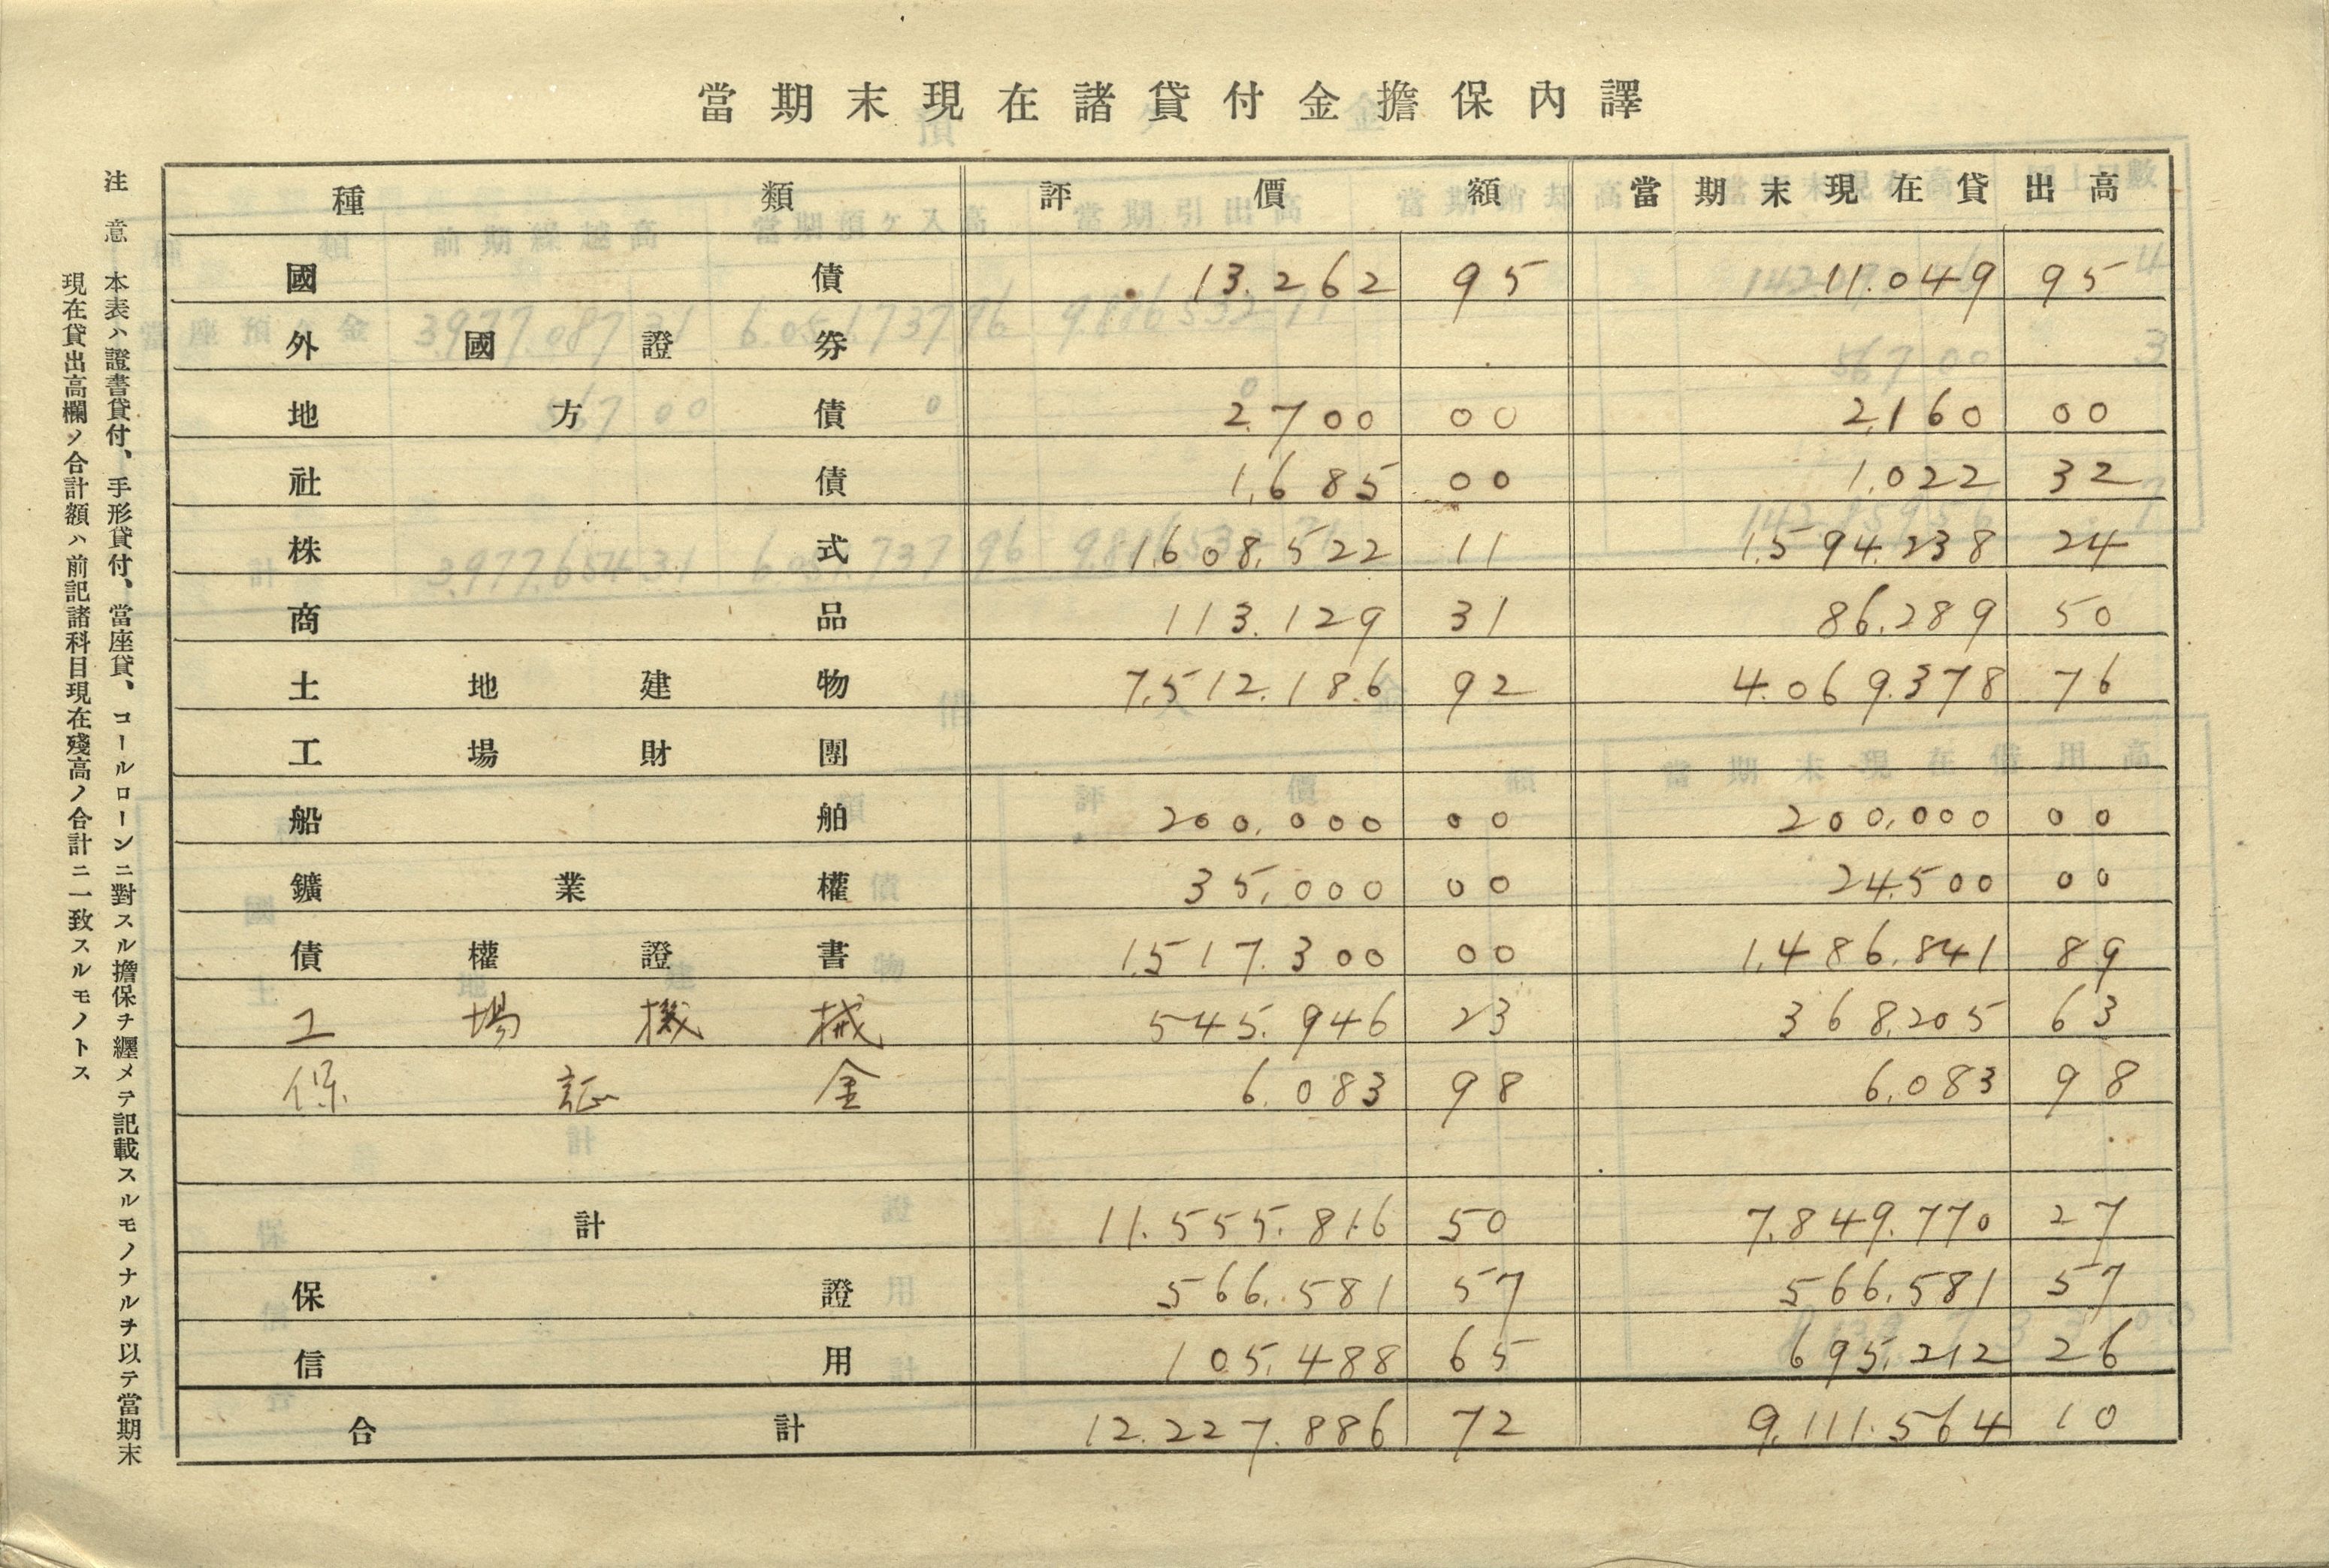 當期末現在諸貸付金擔保內譯
種類 評價額 當期末現在貸出高
國債 13.262 95 11.049 95
外國證券
地方債 2.700 00 2,160 00
社債 1,685 00 1.022 32
株式 1.608.522 11 1.594.238 24
商品 113.129 31 86.289 50
土地建物 7.512.186 92 4.069.378 76
工場財團
船舶 200.000 00 200,000 00
鑛業權 35,000 00 24.500 00
債權證書 1.517.300 00 1.486.841 89
工場機械 545.946 23 368.205 63
保証金 6.083 98 6.083 98
計 11.555.816 50 7.849.770 27
保證 566.581 57 566.581 57
信用 105.488 65 695.212 26
合計 12.227.886 72 9.111.564 10
注意 本表ハ證書貸付、手形貸付、當座貸、コールローンニ對スル擔保チ纒メテ記載スルモノナルチ以テ當期末
現在貸出高欄ノ合計額ハ前記諸科目現在殘高ノ合計ニ一致スルモノトス